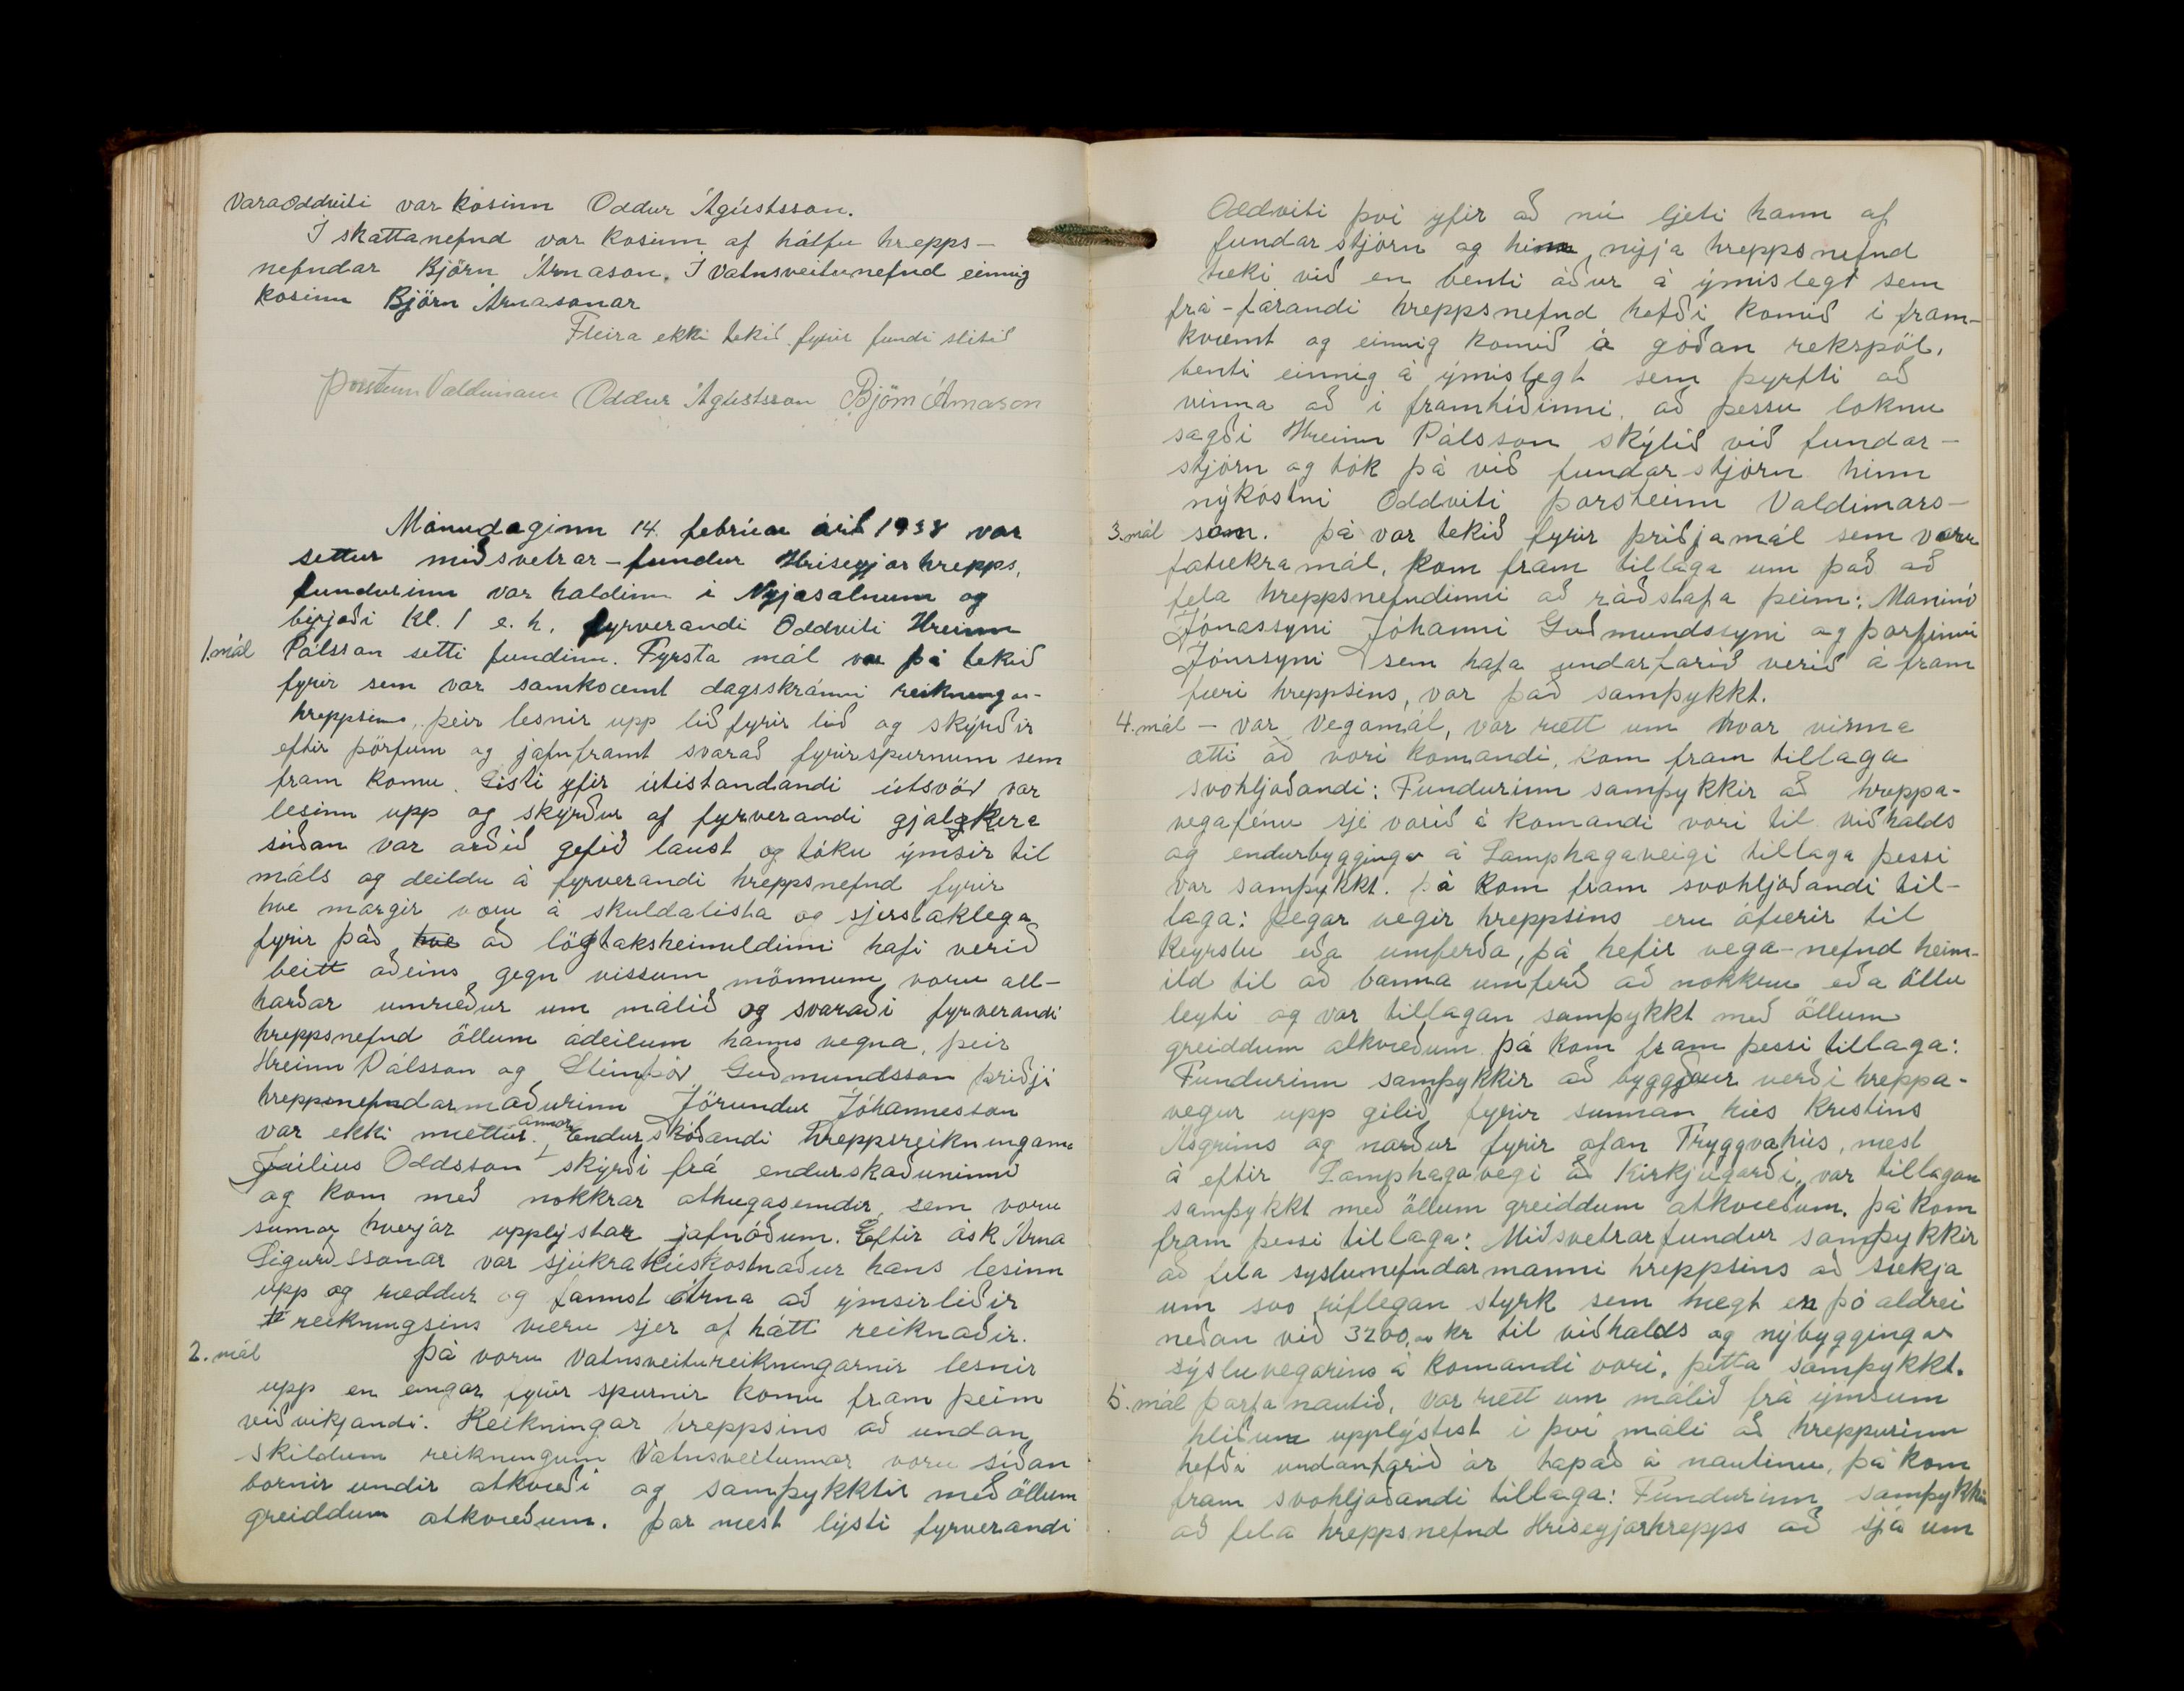 Varaoddviti var kosinn Oddur Ágústsson.
Í skattanefnd var kosinn af hálfu hrepps-
nefndar Björn Árnason. Í Vatnsveitunefnd einnig
kosinn Björn Árnasonar
Fleira ekki tekið fyrir fundi slitið
Þorsteinn Valdimarss Oddur Ágústsson Björn Árnason
Mánudaginn 14. febrúar árið 1938 var
settur miðsvetrar-fundur Hríseyjarhrepps,
fundurinn var haldinn í Nýjasalnum og
byrjaði kl. 1 e.h. fyrverandi Oddviti Hreinn
1. mál Pálsson setti fundinn. Fyrsta mál var þá tekið
fyrir sem var samkvæmt dagsskránni reikningar-
hreppsins, þeir lesnir upp lið fyrir lið og skýrðir
eftir þörfum og jafnframt svarað fyrirspurnum sem
fram komu. Listi yfir útistandandi útsvör var
lesinn upp og skýrður af fyrverandi gjaldkera
síðan var orðið gefið laust og tóku ýmsir til
máls og deildu á fyrverandi hreppsnefnd fyrir
hve margir voru á skuldalista og sjerstaklega
fyrir það hve að lögtaksheimuldinni hafi verið
beitt aðeins gegn vissum mönnum, voru all-
harðar umræður um málið og svaraði fyrverandi
hreppsnefnd öllum ádeilum hanns vegna, þeir
Hreinn Pálsson og Steinþór Guðmundsson þriðji
hreppsnefndarmaðurinn Jörundur Jóhannesson
var ekki mættur. annar Endurskoðandi hreppsreikningana
Júlíus Oddsson skýrði frá endurskoðuninni
og kom með nokkrar athugasemdir, sem voru
sumar hverjar upplýstar jafnóðum. Eftir ósk Árna
Sigurðssonar var sjúkrahúskostnaður hans lesinn
upp og ræddur og fannst Árna að ýmsir liðir
reikningsins væru sjer of hátt reiknaðir.
2. mál Þá voru Vatnsveitureikningarnir lesnir
upp en eingar fyrir spurnir komu fram þeim
viðvikjandi. Reikningar hreppsins að undan
skildum reikningum Vatnsveitunnar voru síðan
bornir undir atkvæði og samþykktir með öllum
greiddum atkvæðum. Þar næst lýsti fyrverandi
Oddviti því yfir að nú ljeti hann af
fundarstjórn og hinn nýja hreppsnefnd
tæki við en benti áður á ýmislegt sem
frá-farandi hreppsnefnd hefði komið í fram-
kvæmt og einnig komið á góðan rekspöl,
benti einnig á ýmislegt sem þyrfti að
vinna að í framtíðinni, að þessu loknu
sagði Hreinn Pálsson skýlið við fundar-
stjórn og tók þá við fundarstjórn hinn
nýkóstni Oddviti Þorsteinn Valdimars-
3. mál son. Þá var tekið fyrir þriðjamál sem voru
fatækramál, kom fram tillaga um það að
fela hreppsnefndinni að ráðstafa þeim: Maninó
Jónassyni Jóhanni Guðmundssyni og Þorfinni
Jónssyni sem hafa undarfarið verið á fram
færi hreppsins, var það samþykkt.
4. mál - var Vegamál, var rætt um hvar vinna
ætti að vori komandi, kom fram tillaga
svohljóðandi: Fundurinn samþykkir að hreppa-
vegafénu sjé varið á komandi vori til viðhalds
og endurbyggingar á Lamphagaveigi tillaga þessi
var samþykkt. Þá kom fram svohljóðandi til-
laga: Þegar vegir hreppsins eru ófærir til
keyrslu eða umferða, þá hefir vega-nefnd heim-
ild til að banna umferð að nokkru eða öllu
leyti og var tillagan samþykkt með öllum
greiddum atkvæðum. Þá kom fram þessi tillaga:
Fundurinn samþykkir að byggður verði hreppa-
vegur upp gilið fyrir sunnan hús Kristins
Ásgríms og norður fyrir ofan Tryggvahús, næst
á eftir Lamphagavegi að Kirkjugarði, var tillagan
samþykkt með öllum greiddum atkvæðum. Þá kom
fram þessi tillaga: Miðsvetrarfundur samþykkir
að fela syslunefndarmanni hreppsins að sækja
um svo ríflegan styrk sem hægt er þó aldrei
neðan við 3200,oo kr til viðhalds og nýbyggingar
sýsluvegarins á komandi vori, þetta samþykkt.
5. mál Þarfanautið, var rætt um málið frá ýmsum
hliðum upplýstist í því máli að hreppurinn
hefði undanfarið ár tapað á nautinu, þá kom
fram svohljóðandi tillaga: Fundurinn samþykkir
að fela hreppsnefnd Hríseyjarhrepps að sjá um